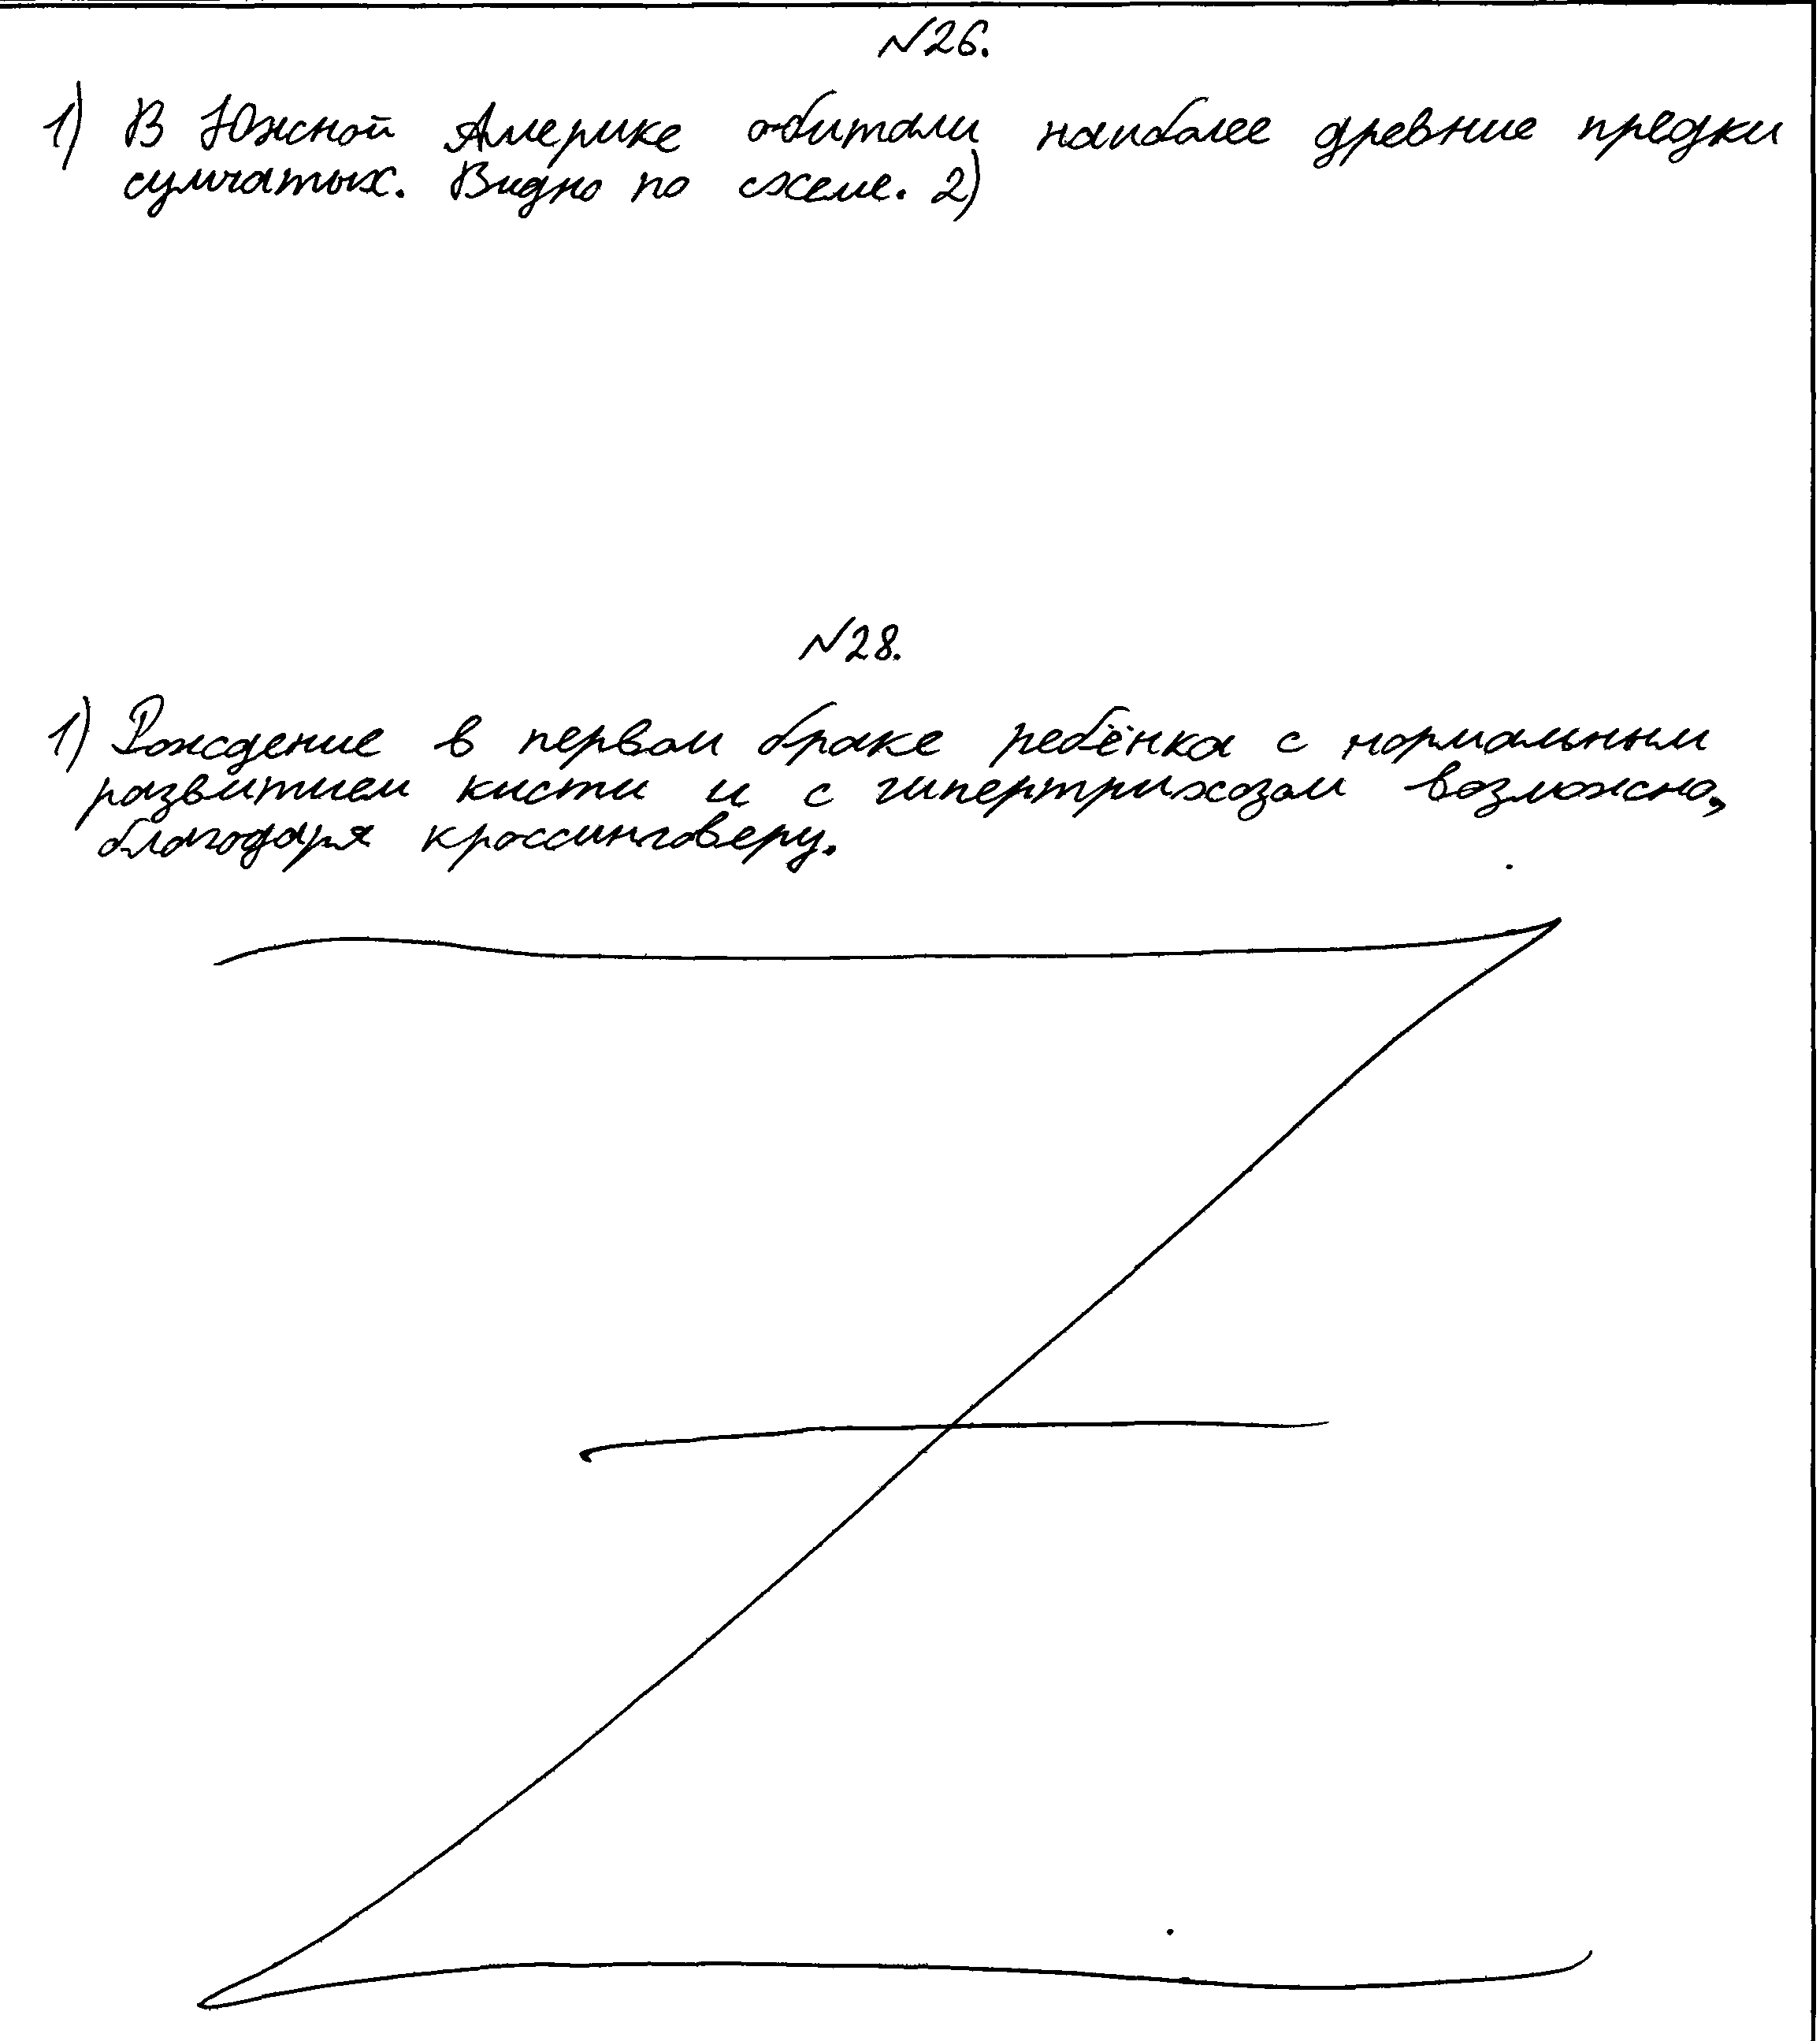 №26.
1) В Южной Америке обитали наиболее древние предки
сумчатых. Видно по схеме. 2)
№28.
1) Рождение в первом браке ребёнка с нормальным
развитием кисти и с гипертрихозом возможно,
благодаря кроссинговеру.